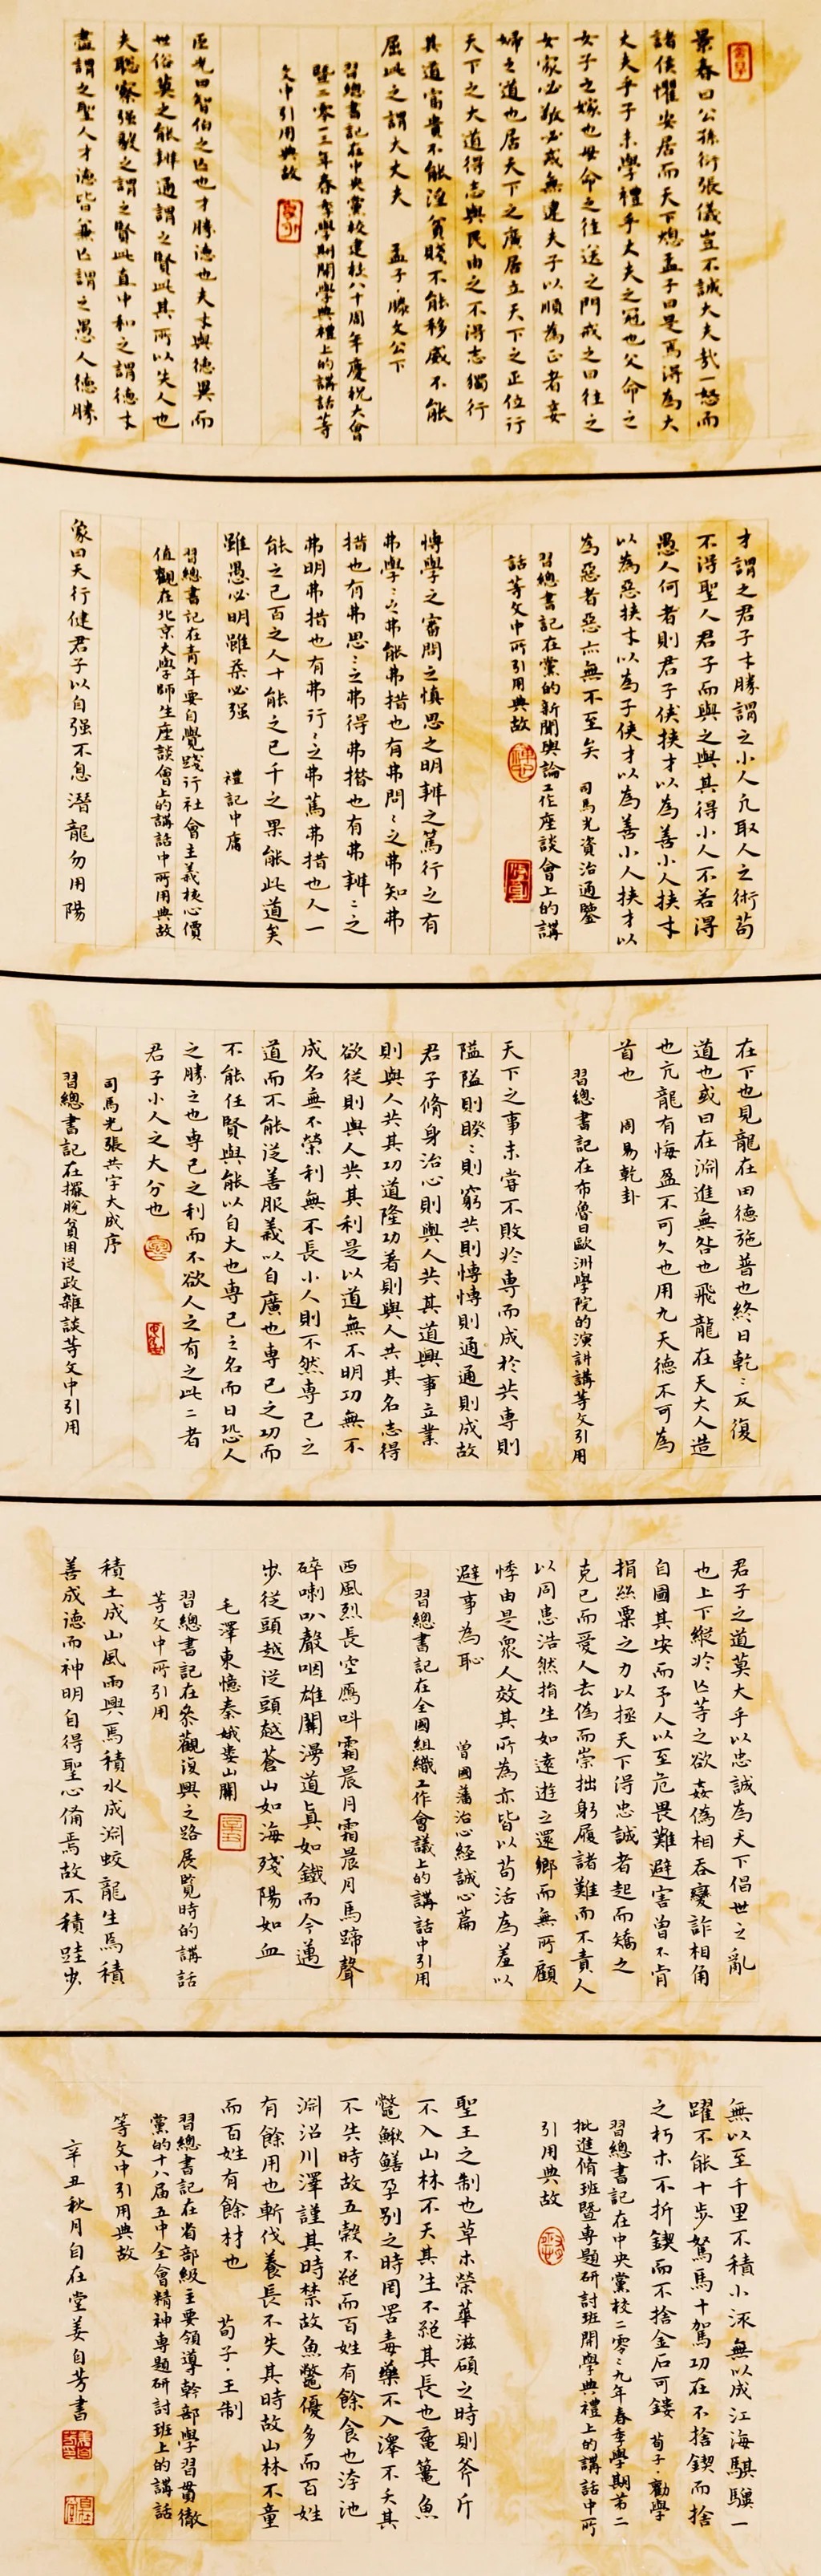 景春曰公孫衍張儀豈不誠大夫哉一怒而
諸侯懼安居而天下熄孟子曰是焉得為大
丈夫乎子未學禮乎丈夫之冠也父命之
女子之嫁也母命之往送之門戒之曰往之
女家必敬必戒無違夫子以順為正者妾
婦之道也居天下之廣居立天下之正位行
天下之大道得志與民由之不得志獨行
其道富貴不能淫貧賤不能移威不能
屈此之謂大丈夫 孟子·滕文公下
習總書記在中央黨校建校八十周年慶祝大會
暨二零一三年春季學期開學典禮上的講話等
文中引用典故
臣光曰智伯之亡也才勝德也夫才與德異而
世俗莫之能辨通謂之賢此其所以失人也
夫聰察强毅之謂才正直中和之謂德才
德全盡謂之聖人才德皆兼亡謂之愚人德勝
才謂之君子才勝謂之小人凡取人之術苟
不得聖人君子而與之與其得小人不若得
愚人何者則君子俠挾才以為善小人挾才
以為惡挾才以為子俠才以為善小人挾才以
為惡者惡亦無不至矣 司馬光資治通鑒
習總書記在黨的新聞輿論工作座談會上的講
話等文中所引用典故
博學之審問之慎思之明辨之篤行之有
弗學:之弗能弗措也有弗問:之弗知弗
措也有弗思:之弗得弗措也有弗辨:之
弗明弗措也有弗行:之弗篤弗措也人一
能之己百之人十能之己千之果能此道矣
雖愚必明雖柔必强 禮記中庸
習總書記在青年要自覺踐行社會主義核心價
值觀在北京大學師生座談會上的講話中所用典故
象曰天行健君子以自强不息潛龍勿用陽
在下也見龍在田德施普也終日乾:反復
道也或曰在淵進無咎也飛龍在天大人造
也亢龍有悔盈不可久也用九天德不可為
首也 周易乾卦
習總書記在布魯日歐洲學院的演講等文引用
天下之事未嘗不敗於專而成於共專則
隘隘則睽:則窮共則博博則通通則成故
君子脩身治心則與人共其道興事立業
則與人共其功道隆功著則與人共其名志得
欲從則與人共其利是以道無不明功無不
成名無不榮利無不長小人則不然專己之
道而不能從善服義以自廣也專己之功而
不能任賢與能以自大也專己之名而日恐人
之勝之也專己之利而不欲人之有之此二者
君子小人之大分也
司馬光張共字大成序
習總書記在擺脫貧困從政雜談等文中引用
君子之道莫大乎以忠誠為天下倡世之亂
也上下縱於亡等之欲姦偽相吞變詐相角
自圖其安而予人以至危畏難避害曾不肯
捐絲粟之力以拯天下得忠誠者起而矯之
克己而愛人去偽而崇拙躬履諸難而不責人
以同患浩然捐生如遠遊之還鄉而無所顧
悸由是眾人效其所為亦皆以苟活為羞以
避事為恥 曾國藩治心經誠心篇
習總書記在全國組織工作會議上的講話中引用
西風烈長空鴈叫霜晨月霜晨月馬蹄聲
碎喇叭聲咽雄關漫道真如鐵而今邁
步從頭越從頭越蒼山如海殘陽如血
毛澤東憶秦娥婁山關
習總書記在參觀復興之路展覽時的講話
等文中所引用
積土成山風雨興焉積水成淵蛟龍生焉積
善成德而神明自得聖心備焉故不積跬步
無以至千里不積小流無以成江海騏驥一
躍不能十步駑馬十駕功在不捨鍥而捨
之朽木不折鍥而不捨金石可鏤 荀子·勸學
習總書記在中央黨校二零零九年春季學期第二
批進脩班暨專題研討班開學典禮上的講話中所
引用典故
聖王之制也草木榮華滋碩之時則斧斤
不入山林不夭其生不絕其長也黿鼉魚
鱉鰍鱔孕別之時罔罟毒藥不入澤不夭其
不失時故五穀不絕而百姓有餘食也洿池
淵沼川澤謹其時禁故魚鱉優多而百姓
有餘用也斬伐養長不失其時故山林不童
而百姓有餘材也 荀子·王制
習總書記在省部級主要領導幹部學習貫徹
黨的十八届五中全會精神專題研討班上的講話
等文中引用典故
辛丑秋月自在堂姜自芳書